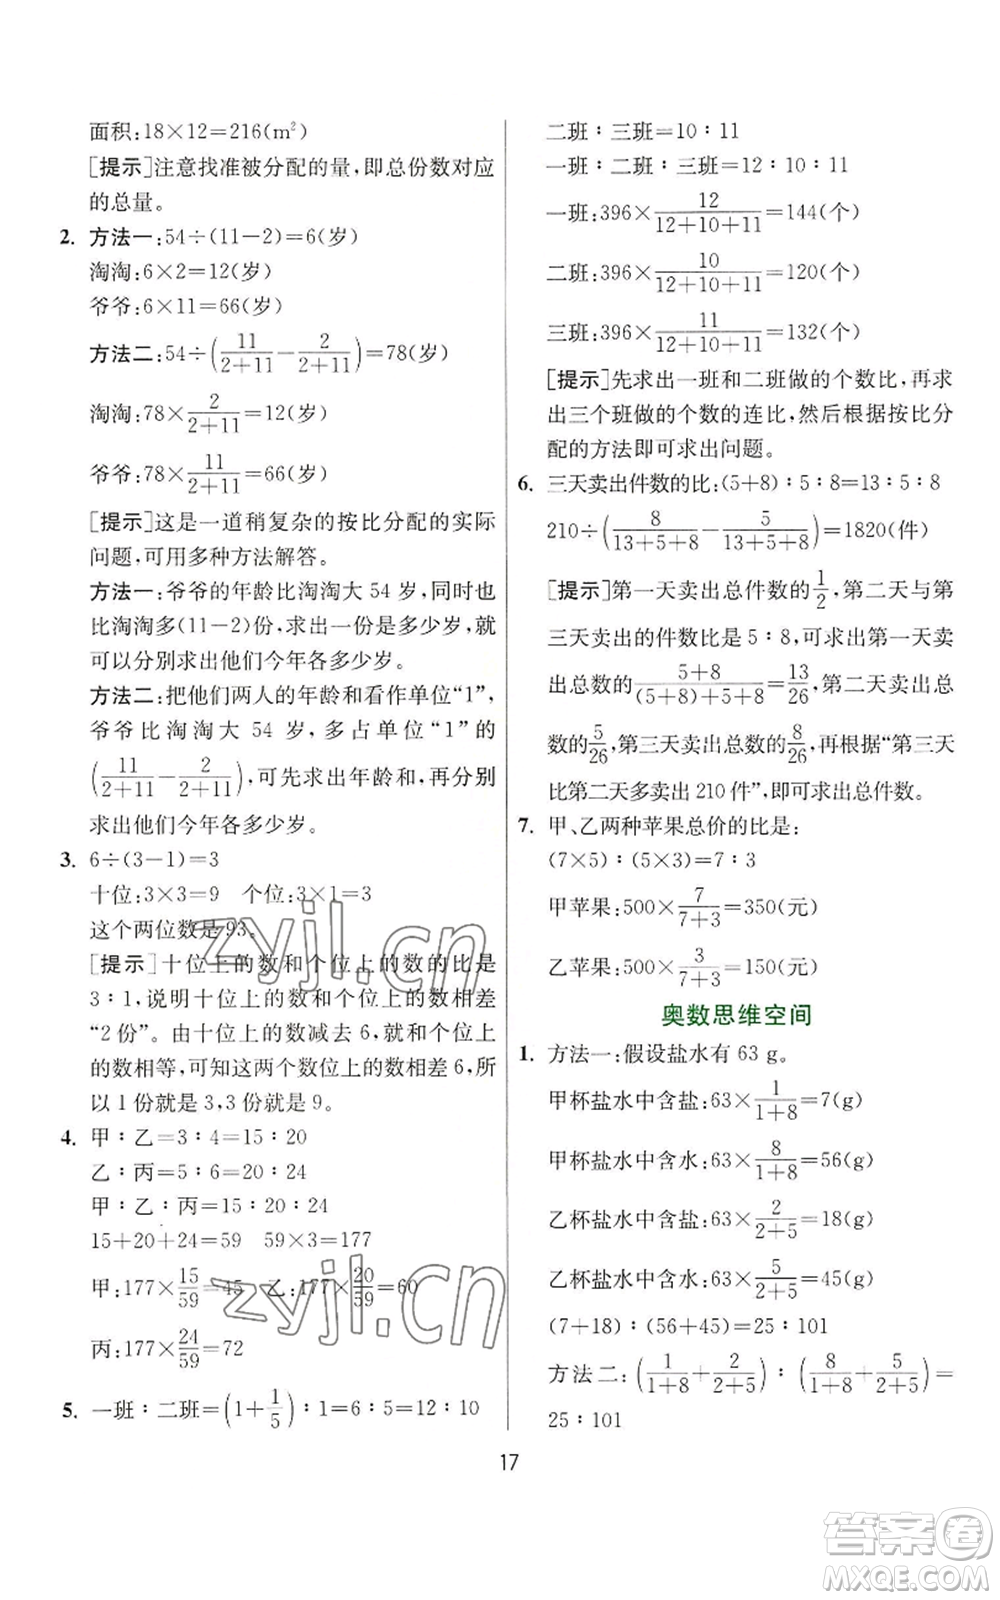 面积:18×12=216(m²)
[提示]注意找准被分配的量,即总份数对应
的总量。
2. 方法一:54÷(11−2)=6(岁)
淘淘:6×2=12(岁)
爷爷:6×11=66(岁)
方法二:54÷(11/(2+11)−2/(2+11))=78(岁)
淘淘:78×2/(2+11)=12(岁)
爷爷:78×11/(2+11)=66(岁)
[提示]这是一道稍复杂的按比分配的实际
问题,可用多种方法解答。
方法一:爷爷的年龄比淘淘大 54 岁,同时也
比淘淘多(11−2)份,求出一份是多少岁,就
可以分别求出他们今年各多少岁。
方法二:把他们两人的年龄和看作单位“1”,
爷爷比淘淘大 54 岁,多占单位“1”的
(11/(2+11)−2/(2+11)),可先求出年龄和,再分别
求出他们今年各多少岁。
3. 6÷(3−1)=3
十位:3×3=9 个位:3×1=3
这个两位数是 93。
[提示]十位上的数和个位上的数的比是
3∶1,说明十位上的数和个位上的数相差
“2份”。由十位上的数减去 6,就和个位上
的数相等,可知这两个数位上的数相差 6,所
以 1 份就是 3,3 份就是 9。
4. 甲∶乙=3∶4=15∶20
乙∶丙=5∶6=20∶24
甲∶乙∶丙=15∶20∶24
15+20+24=59 59×3=177
甲:177×15/59=45 乙:177×20/59=60
丙:177×24/59=72
5. 一班∶二班=(1+1/5)∶1=6∶5=12∶10
二班∶三班=10∶11
一班∶二班∶三班=12∶10∶11
一班:396×12/(12+10+11)=144(个)
二班:396×10/(12+10+11)=120(个)
三班:396×11/(12+10+11)=132(个)
[提示]先求出一班和二班做的个数比,再求
出三个班做的个数的连比,然后根据按比分
配的方法即可求出问题。
6. 三天卖出件数的比:(5+8)∶5∶8=13∶5∶8
210÷(8/(13+5+8)−5/(13+5+8))=1820(件)
[提示]第一天卖出总件数的1/2,第二天与第
三天卖出的件数比是 5∶8,可求出第一天卖
出总数的(5+8)/((5+8)+5+8)=13/26,第二天卖出总
数的5/26,第三天卖出总数的8/26,再根据“第三天
比第二天多卖出 210 件”,即可求出总件数。
7. 甲、乙两种苹果总价的比是:
(7×5)∶(5×3)=7∶3
甲苹果:500×7/(7+3)=350(元)
乙苹果:500×3/(7+3)=150(元)
奥数思维空间
1. 方法一:假设盐水有 63 g。
甲杯盐水中含盐:63×1/(1+8)=7(g)
甲杯盐水中含水:63×8/(1+8)=56(g)
乙杯盐水中含盐:63×2/(2+5)=18(g)
乙杯盐水中含水:63×5/(2+5)=45(g)
(7+18)∶(56+45)=25∶101
方法二:(1/(1+8)+2/(2+5))∶(8/(1+8)+5/(2+5))=
25∶101
17
zyjl.cn
zyjl.cn
答案卷
MXQE.COM